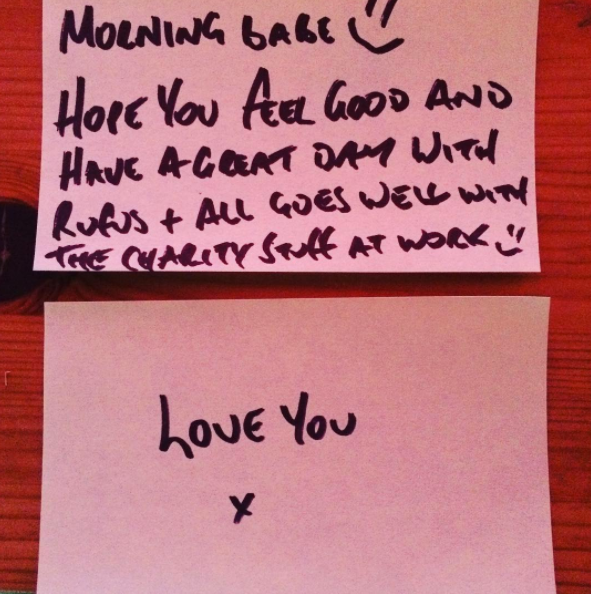 MORNING BABE :)
HOPE YOU FEEL GOOD AND
HAVE A GREAT DAY WITH
RUFUS + ALL GOES WELL WITH
THE CHARITY STUFF AT WORK :)
LOVE YOU
x